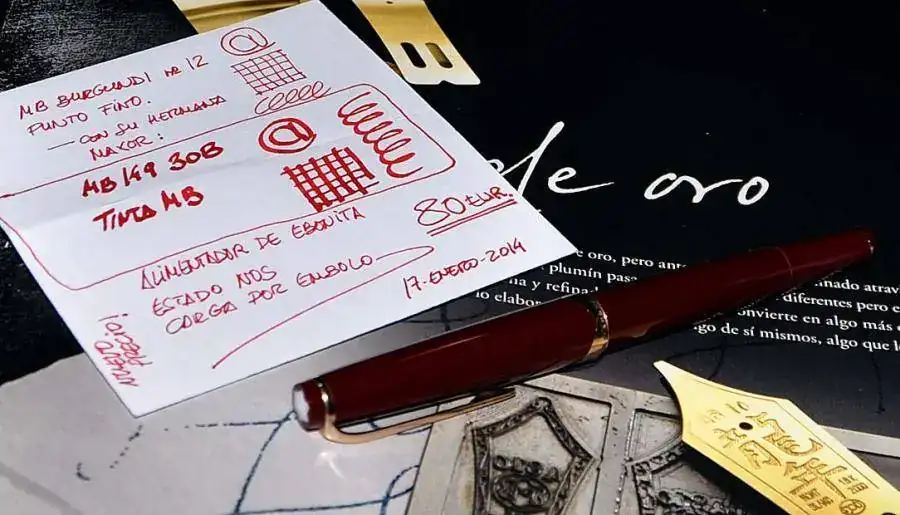 @
MB BURGUNDI Nº 12
PUNTO FINO.
— CON SU HERMANA
MAYOR:
@
MB 149 30B
TINTA MB
80 EUR.
ALIMENTADOR DE EBONITA
ESTADO NOS
CARGA POR EMBOLO
17-ENERO-2014
¡NUEVO
PRECIO!
de oro
de oro, pero
plumín
y refina
no elabor
diferentes pero
convierte en algo más
go de sí mismos, algo que